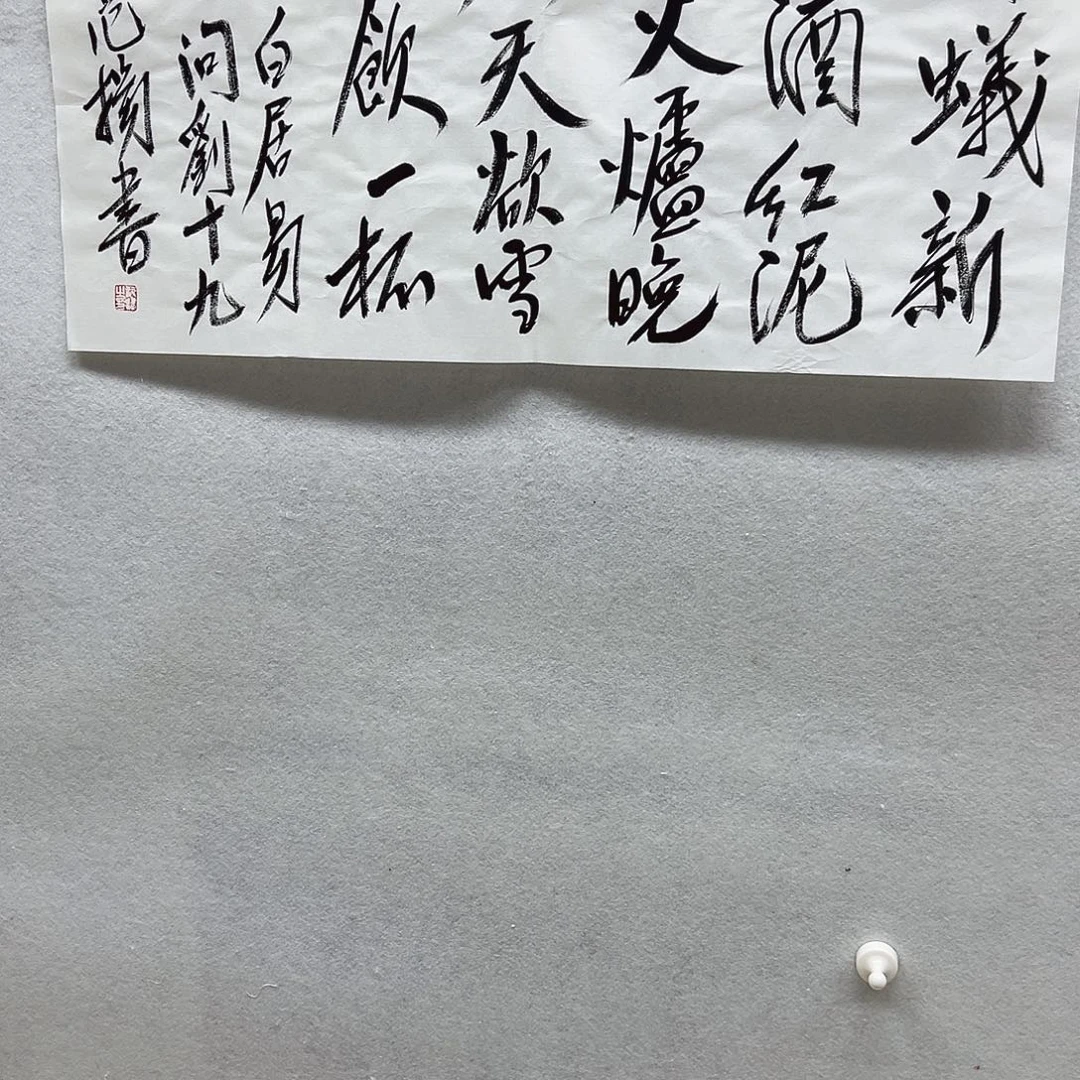 蟻新
酒紅泥
火爐晚
天欲雪
飲一杯
白居易
問劉十九
書